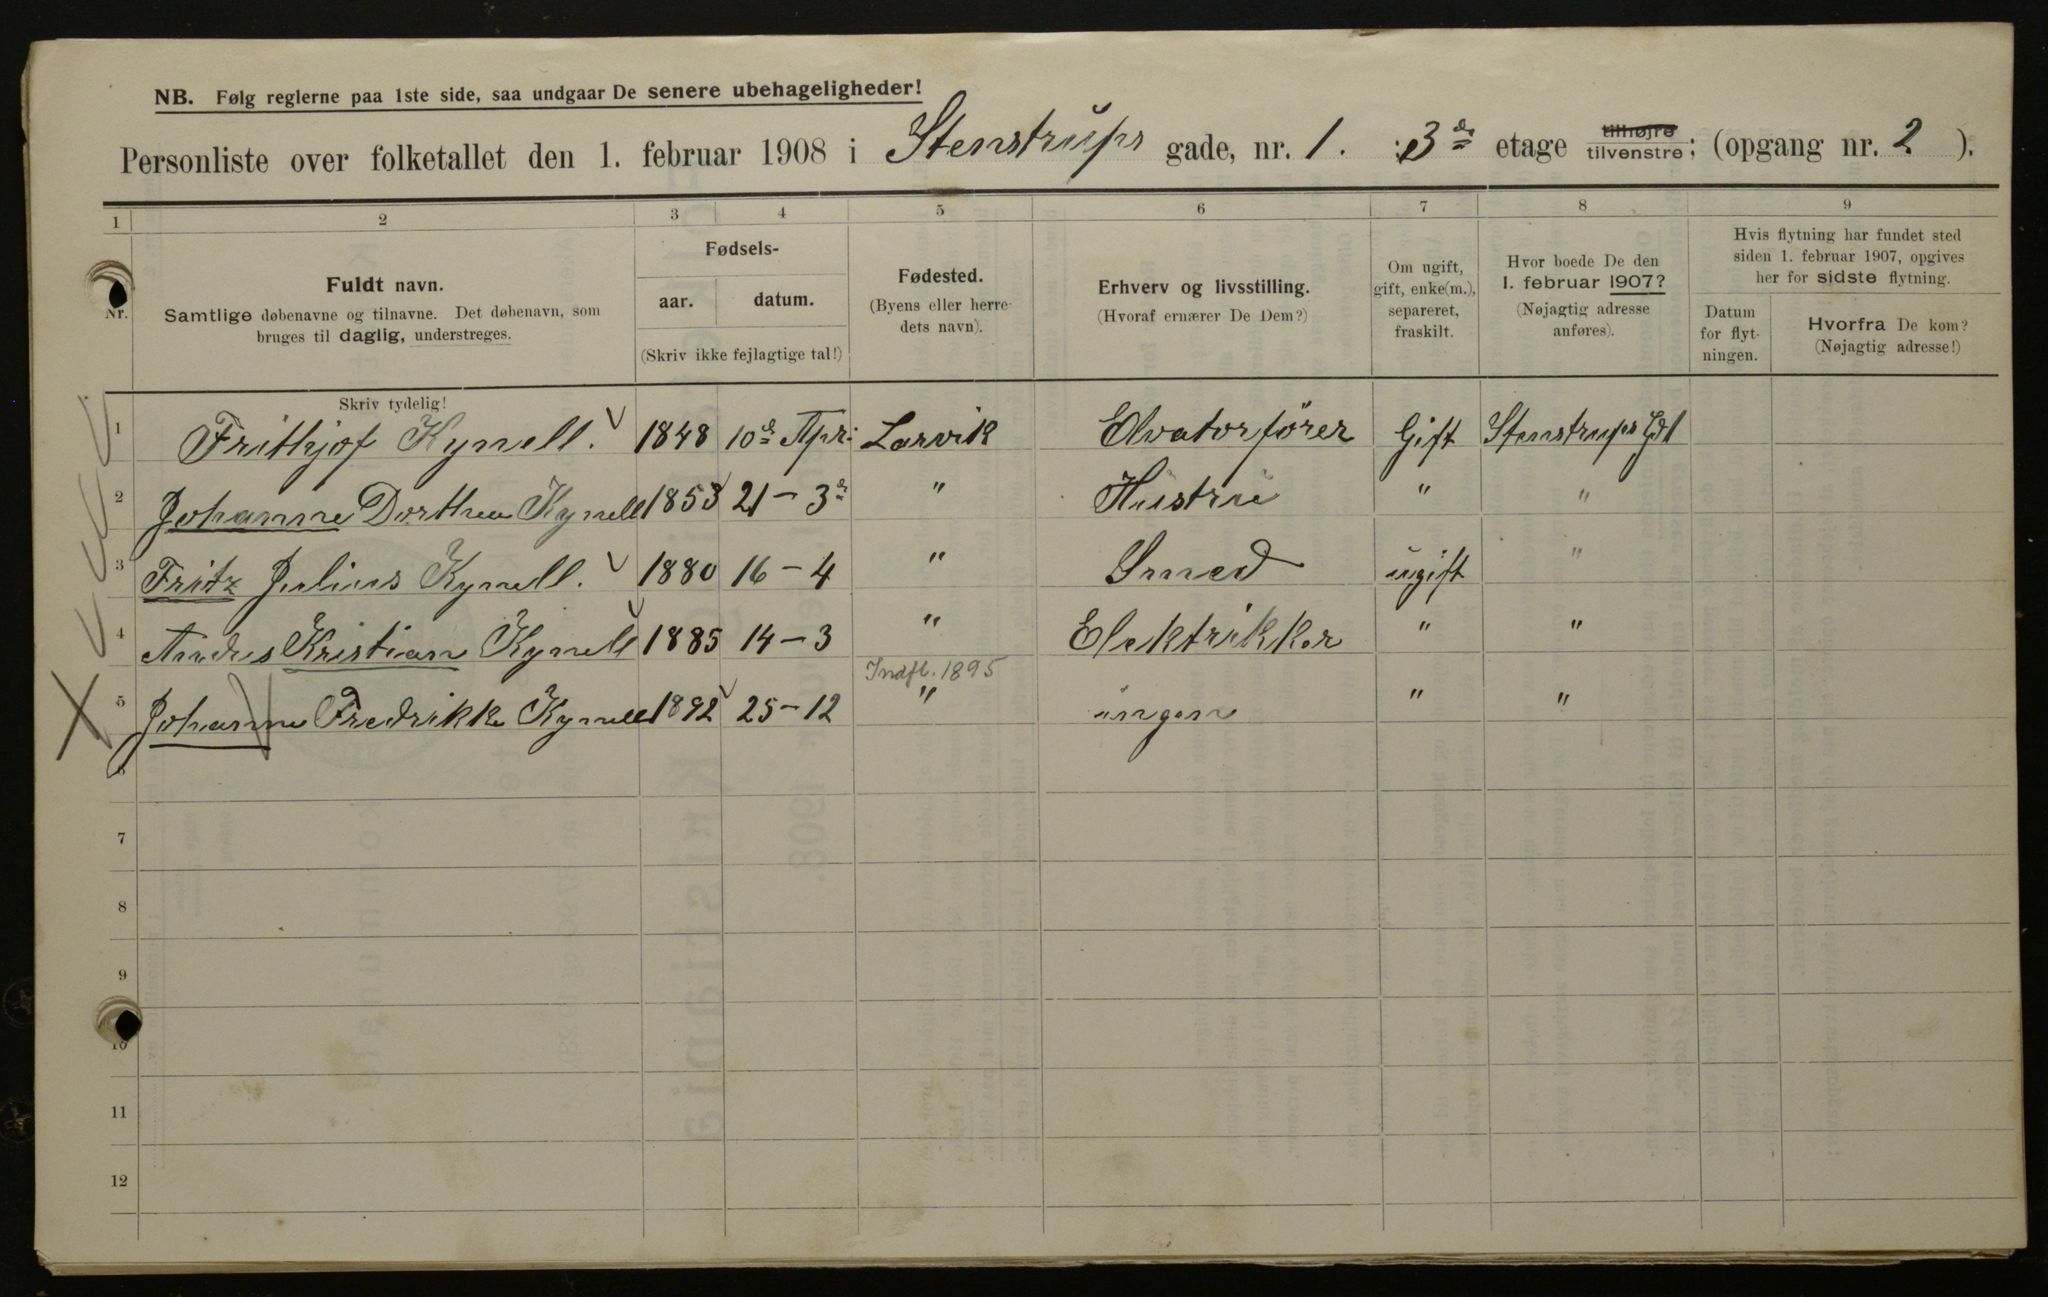 NB. Følg reglerne paa 1ste side, saa undgaar De senere ubehageligheder!
Personliste over folketallet den 1. februar 1908 i Stenstrups gade, nr. 1. : 3de etage tilhøjre tilvenstre; (opgang nr. 2 ).
1 2 3 4 5 6 7 8 9
Nr.
Fuldt navn.
Samtlige døbenavne og tilnavne. Det døbenavn, som
bruges til daglig, understreges.
Fødsels-
aar. datum.
(Skriv ikke fejlagtige tal!)
Fødested.
(Byens eller herre-
dets navn).
Erhverv og livsstilling.
(Hvoraf ernærer De Dem?)
Om ugift,
gift, enke(m.),
separeret,
fraskilt.
Hvor boede De den
1. februar 1907?
(Nøjagtig adresse
anføres).
Hvis flytning har fundet sted
siden 1. februar 1907, opgives
her for sidste flytning.
Datum
for flyt-
ningen.
Hvorfra De kom?
(Nøjagtig adresse!)
Skriv tydelig!
1 Frithjof Kynell. 1848 10de Apri Larvik Elvatorfører Gift Stenstrups Gd 1
2 Johanne Dorthea Kynell 1853 21 – 3de " Hustru " "
3 Fritz Julius Kynell. 1880 16 – 4 " Smed ugift "
4 Andres Kristian Kynell 1885 14 – 3 " Elektrikker " "
Indfl. 1895
5 Johanne Fredrikke Kynell 1892 25 – 12 " ingen " "
6
7
8
9
10
11
12